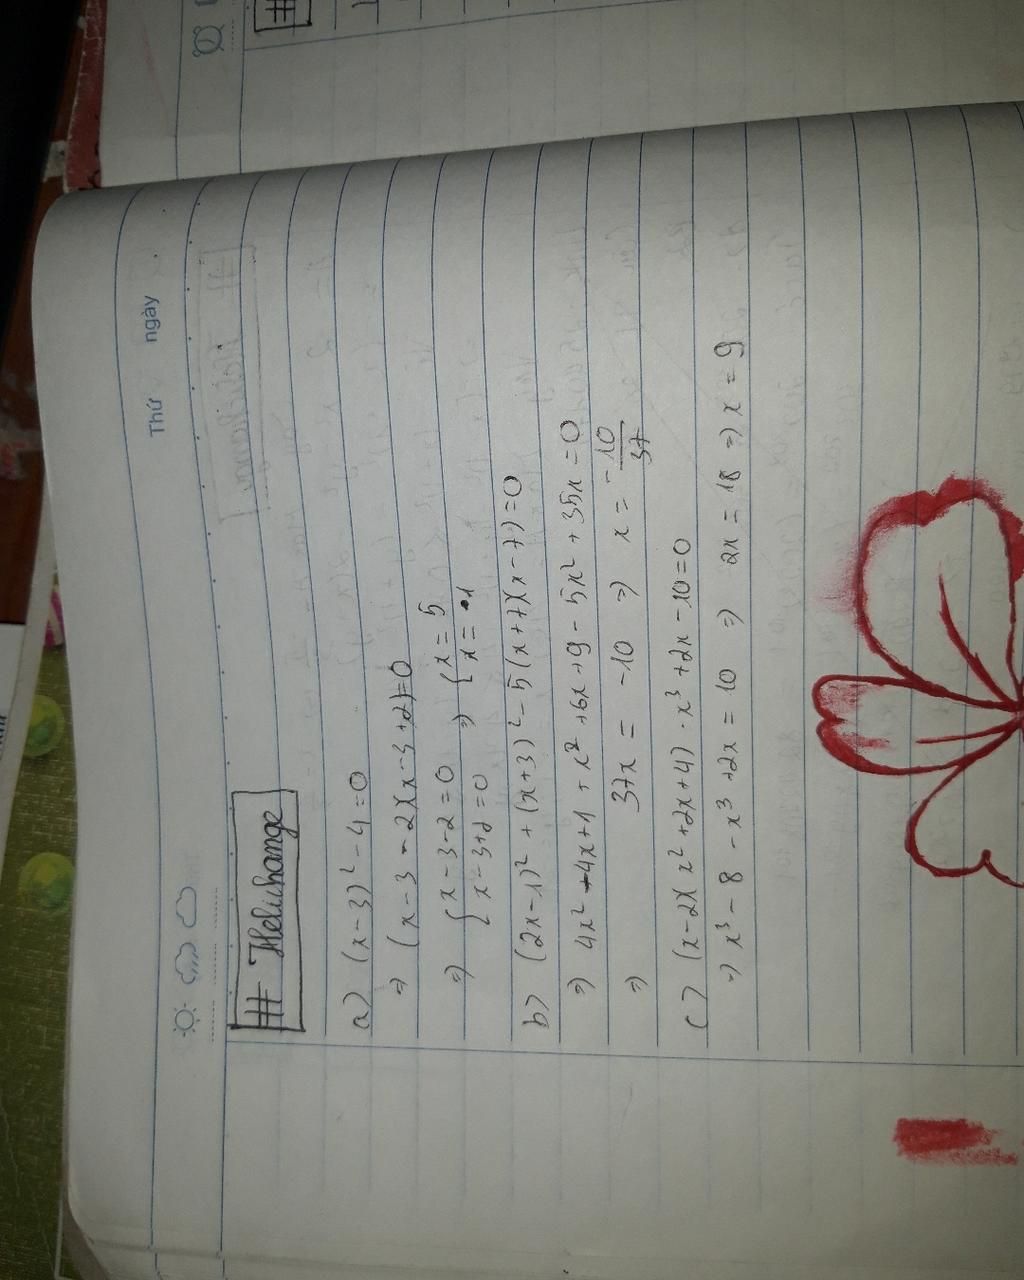 Thứ ngày
# Helichange
a) (x-3)² - 4 = 0
⇒ (x-3-2)(x-3+2)=0
⇒ { x-3-2=0 ⇒ { x = 5
{ x-3+2=0 { x = 1
b) (2x-1)² + (x+3)² - 5(x+7)(x-7) = 0
⇒ 4x² - 4x+1 + x² + 6x + 9 - 5x² + 35x = 0
⇒ 37x = -10 ⇒ x = -10/37
c) (x-2)(x²+2x+4) - x³ + 2x - 10 = 0
⇒ x³ - 8 - x³ + 2x = 10 ⇒ 2x = 18 ⇒ x = 9